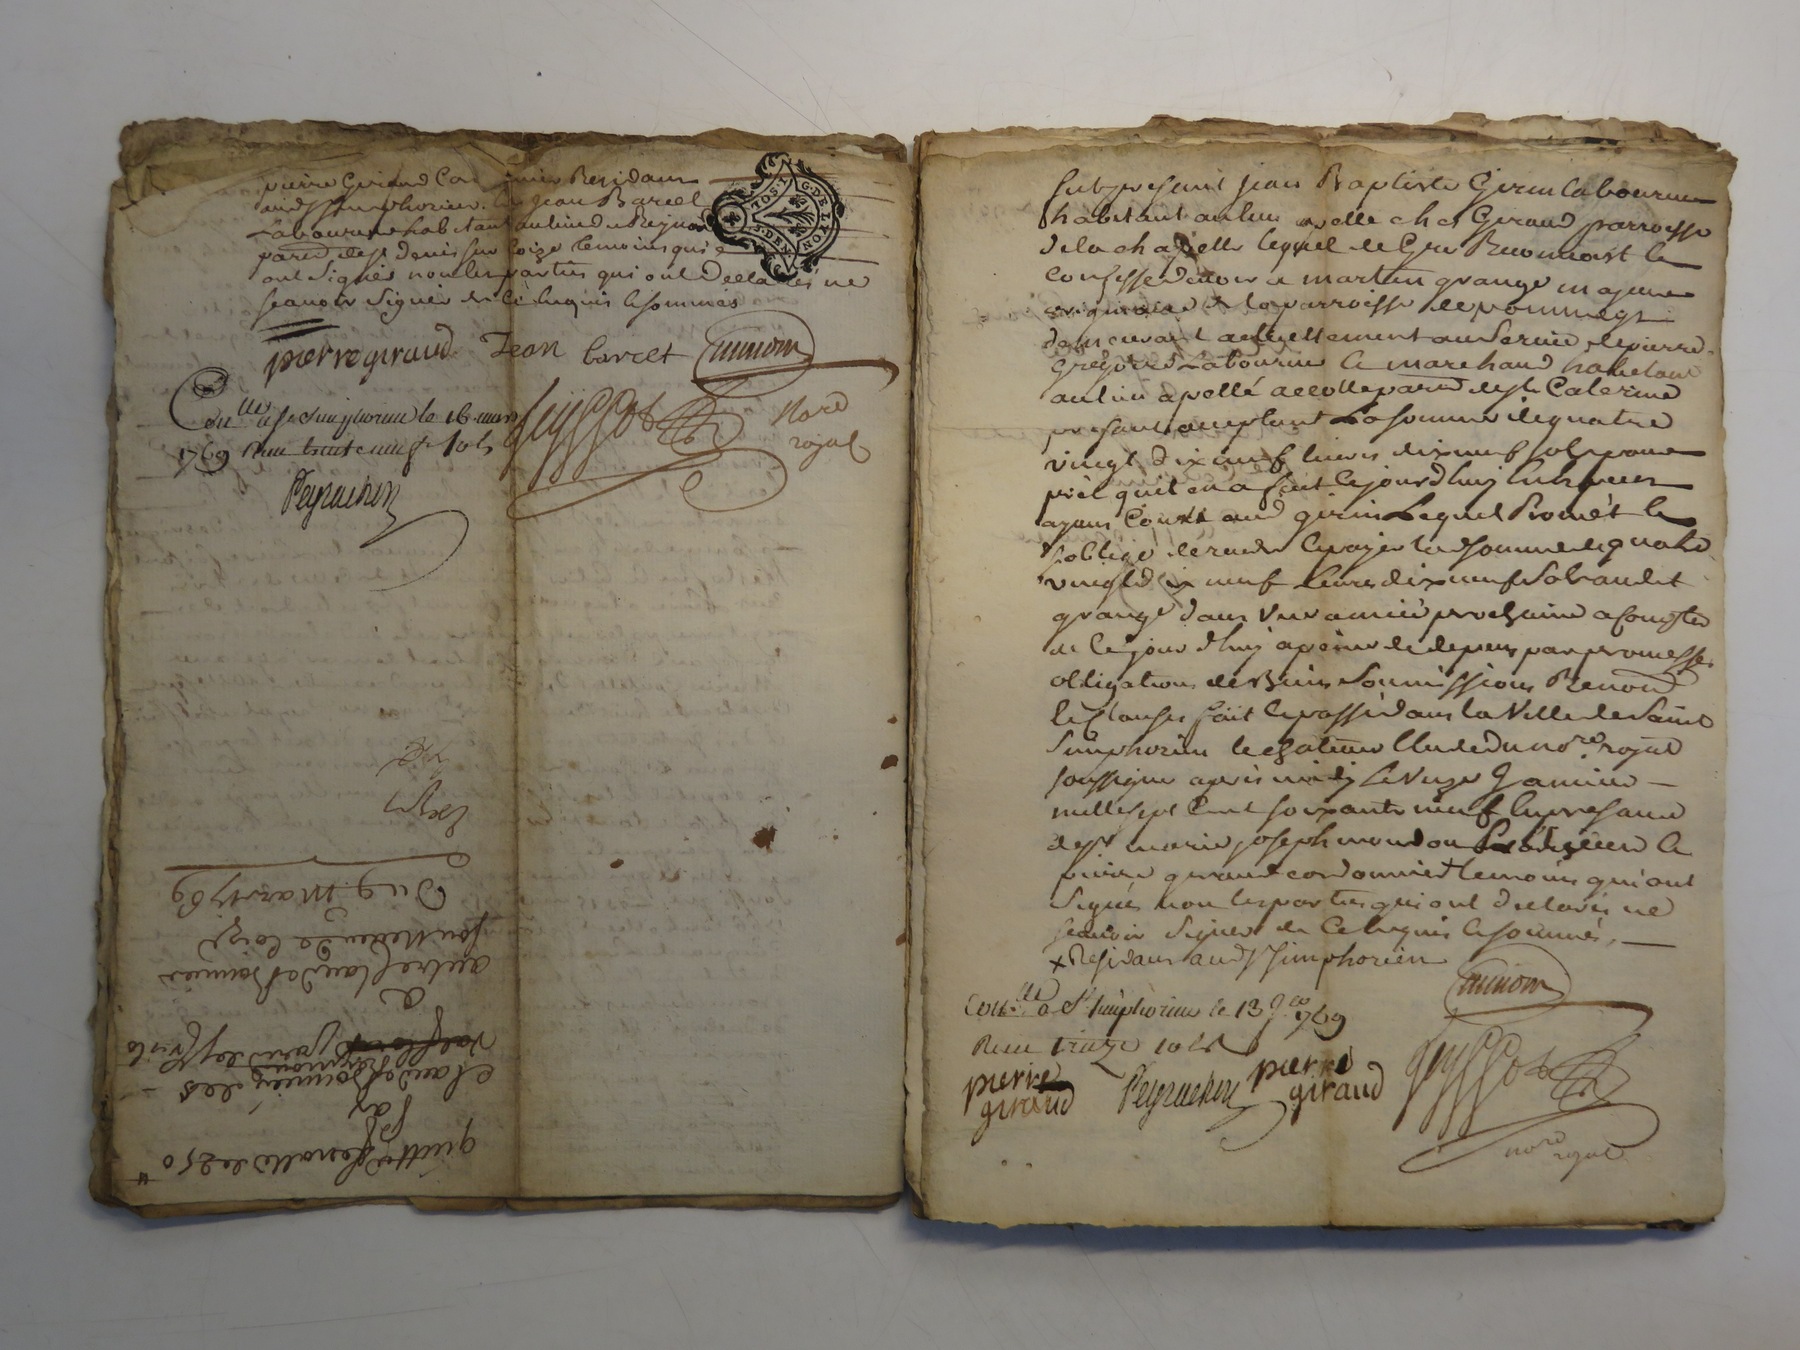 pierre Giraud Cordonnier Residant
aud St Simphorien, et Jean Barcet
Laboureur habitant au lieu de
paroe de St Denis sur Coize temoins qui
ont signés non les parties qui ont declarés ne
scavoir signer de ce enquis et sommés
pierre giraud Jean barcet
Conllé a St Simphorien le 16 mars
1769 Reçu trente neuf sols
Nore
royal
G. DE LYON
quittce generalle de 250
par
claude Bonnier des
a
autre claude Bonnier
fouilleux de Coize
Du 9 mars 1769
fut present Jean Baptiste Gerin laboureur
habitant au lieu apellé chez Giraud parroesse
de la chapelle lequel de Gré Reconnoist et
confesse devoir a martin grange majeur
originaire de la parroesse de pommeys
demeurant actuellement au Service de pierre
Gregoire Laboureur et marchand habitant
au lieu apellé accolle paroe de Ste Caterine
present acceptant La somme de quatre
vingt dix neuf livres dix neuf sols pour
prêt qu'il en a fait cejourd'huy en especes
ayant Cours aud gerin Lequel Promet et
s'oblige de rendre et payer lad somme de quatre
vingt dix neuf Livres dix neuf Sols audit
grange dans une année prochaine a compter
de ce jour d'huy a peine de depens par promesses
obligations de Biens Soumissions Renon
et Clauses fait et passé dans la Ville de Saint
Simphorien le chateau Etude du nore royal
soussigné après midy Le Unze Janvier
mille sept Cent soixante neuf En presence
de Sr marie joseph mondon et
pierre giraud cordonnier temoins qui ont
Signés non les parties qui ont declarés ne
scavoir signer de ce enquis et sommés,
x Residans aud St Simphorien
Conllé a St Simphorien le 13
1769
Reçu treize sols
pierre
giraud
pierre
giraud
nore royal